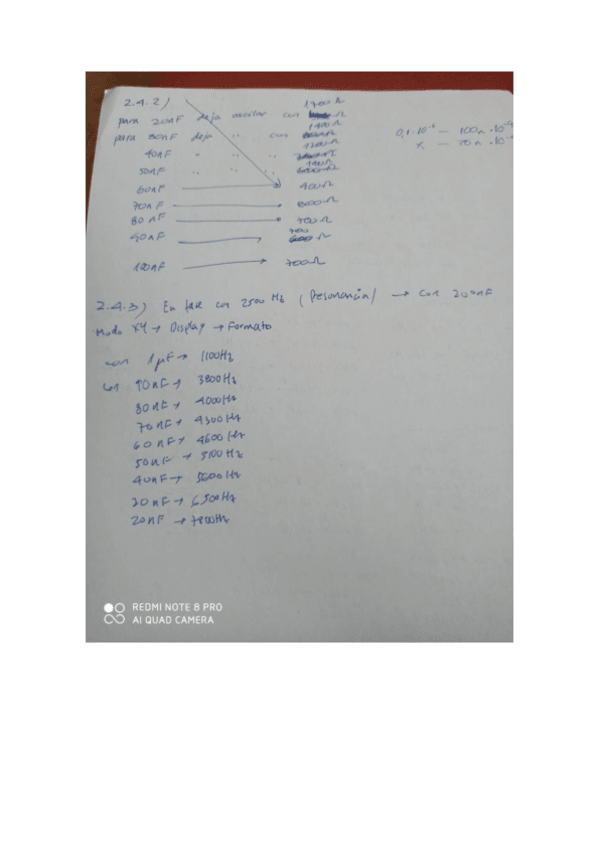 2.4.2)
1700Ω
para 20nF deja oscilar con Ω
1400Ω
para 30nF deja " " con
1200Ω
40nF " " "
50nF " " "
60nF → 900Ω
70nF → 800Ω
80nF → 700Ω
700
90nF → Ω
100nF → 700Ω
0,1·10⁻⁶ — 100n·10⁻⁹
x — 70n·10
2.4.3) En fase con 2500 Hz (Resonancia) → con 200nF
Modo XY → Display → Formato
con 1µF → 1100Hz
con 90nF → 3800Hz
80nF → 4000Hz
70nF → 4300Hz
60nF → 4600Hz
50nF → 5100Hz
40nF → 5600Hz
30nF → 6500Hz
20nF → 7800Hz
REDMI NOTE 8 PRO
AI QUAD CAMERA